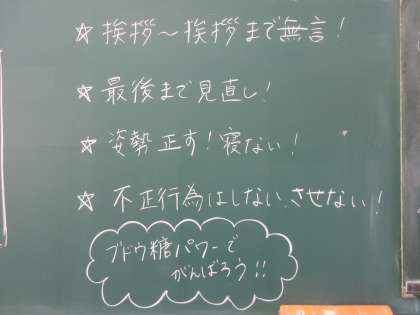 ☆挨拶～挨拶まで無言!
☆最後まで見直し!
☆姿勢正す!寝ない!
☆不正行為はしない、させない!
ブドウ糖パワーで
がんばろう!!